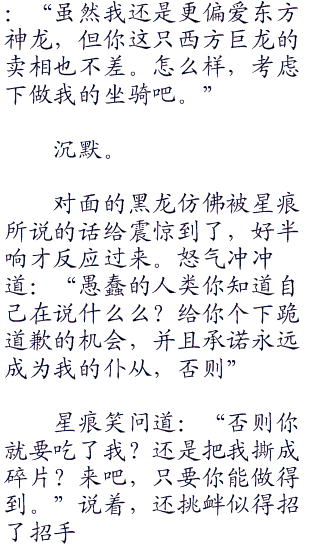 ：“虽然我还是更偏爱东方
神龙，但你这只西方巨龙的
卖相也不差。怎么样，考虑
下做我的坐骑吧。”
沉默。
对面的黑龙仿佛被星痕
所说的话给震惊到了，好半
响才反应过来。怒气冲冲
道：“愚蠢的人类你知道自
己在说什么么？给你个下跪
道歉的机会，并且承诺永远
成为我的仆从，否则”
星痕笑问道：“否则你
就要吃了我？还是把我撕成
碎片？来吧，只要你能做得
到。”说着，还挑衅似得招
了招手